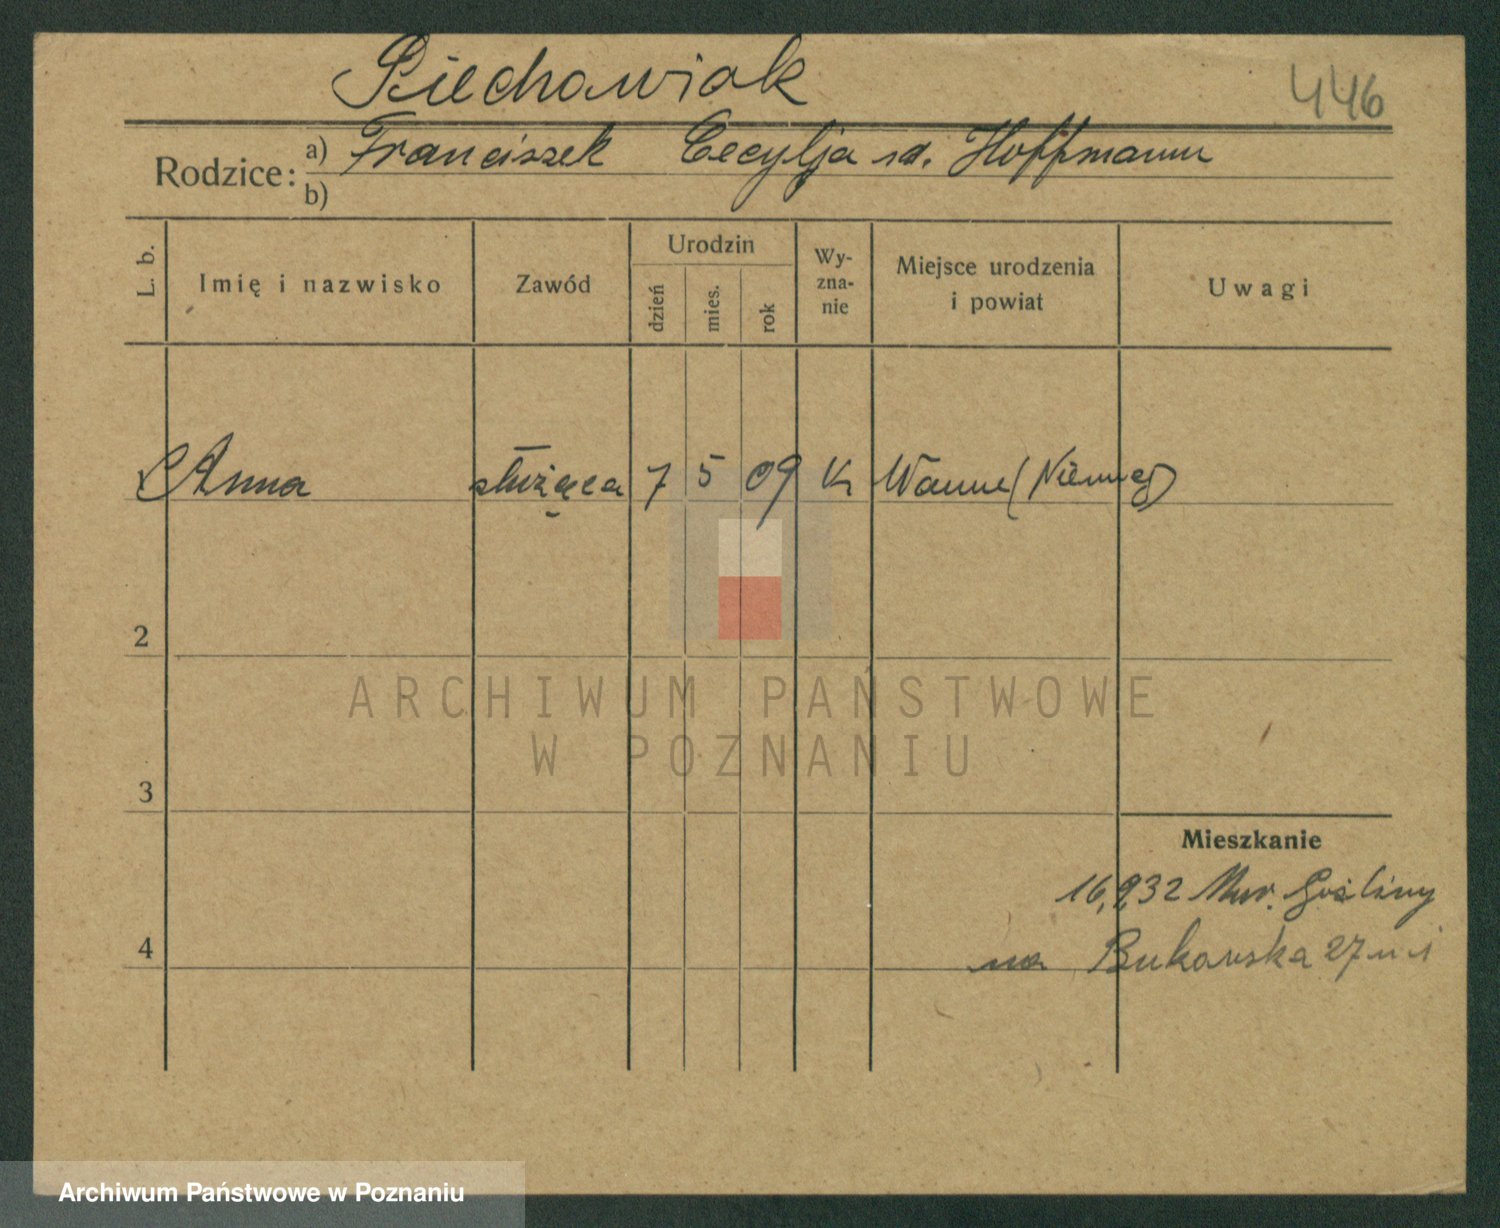 Piechowiak
446
Rodzice: a) Franciszek Cecylja zd. Hoffmann
b)
L. b.
Imię i nazwisko
Zawód
Urodzin
dzień
mies.
rok
Wy-
zna-
nie
Miejsce urodzenia
i powiat
Uwagi
Anna służąca 7 5 09 K Wanne (Niemcy)
2
ARCHIWUM PAŃSTWOWE
W POZNANIU
3
Mieszkanie
16,9,32 Mur. Gośliny
4
na Bukowska 27 m 1
Archiwum Państwowe w Poznaniu